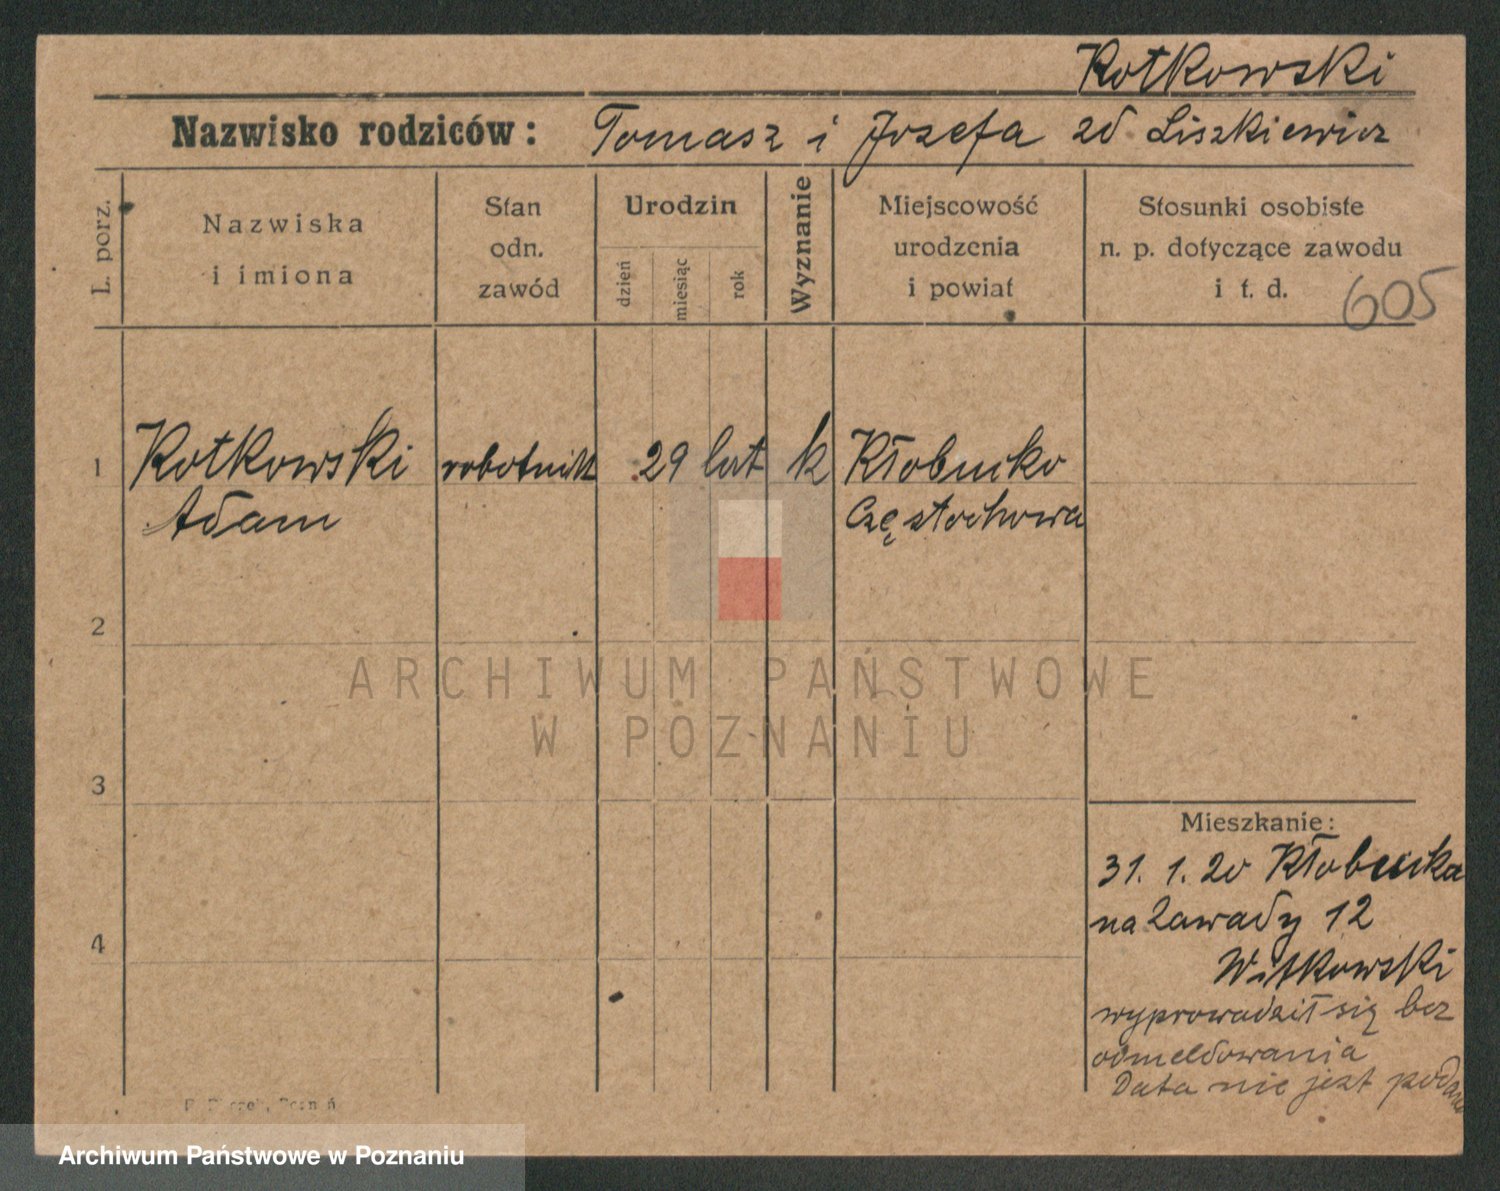 Kotkowski
Nazwisko rodziców: Tomasz i Jozefa zd Liszkiewicz
L. porz.
Nazwiska
i imiona
Stan
odn.
zawód
Urodzin
dzień
miesiąc
rok
Wyznanie
Miejscowość
urodzenia
i powiat
Stosunki osobiste
n. p. dotyczące zawodu
i t. d.
605
1 Kotkowski robotnik 29 lat k Kłobucko
Adam Częstochowa
2
3
4
ARCHIWUM PAŃSTWOWE
W POZNANIU
Mieszkanie:
31. 1. 20 Kłobucka
na Zawady 12
Witkowski
wyprowadził się bez
odmeldowania
Data nie jest podana
Archiwum Państwowe w Poznaniu